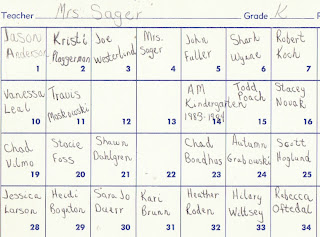 Teacher Mrs. Sager Grade K
Jason Anderson
1
Kristi Ploggerman
2
Joe Westerlind
3
Mrs. Sager
4
John Fuller
5
Shark Wynne
6
Robert Koch
7
Vanessa Leal
10
Travis Maskowski
11
12
13
AM Kindergarten 1983-1984
14
Todd Poach
15
Stacey Novak
16
Chad Vilmo
19
Stacie Foss
20
Shawn Dahlgren
21
22
Chad Bondhus
23
Autumn Grabowski
24
Scott Hoglund
25
Jessica Larson
28
Heidi Boynton
29
Sara Jo Duerr
30
Kari Brunn
31
Heather Roden
32
Hilary Willsey
33
Rebecca Oftedal
34